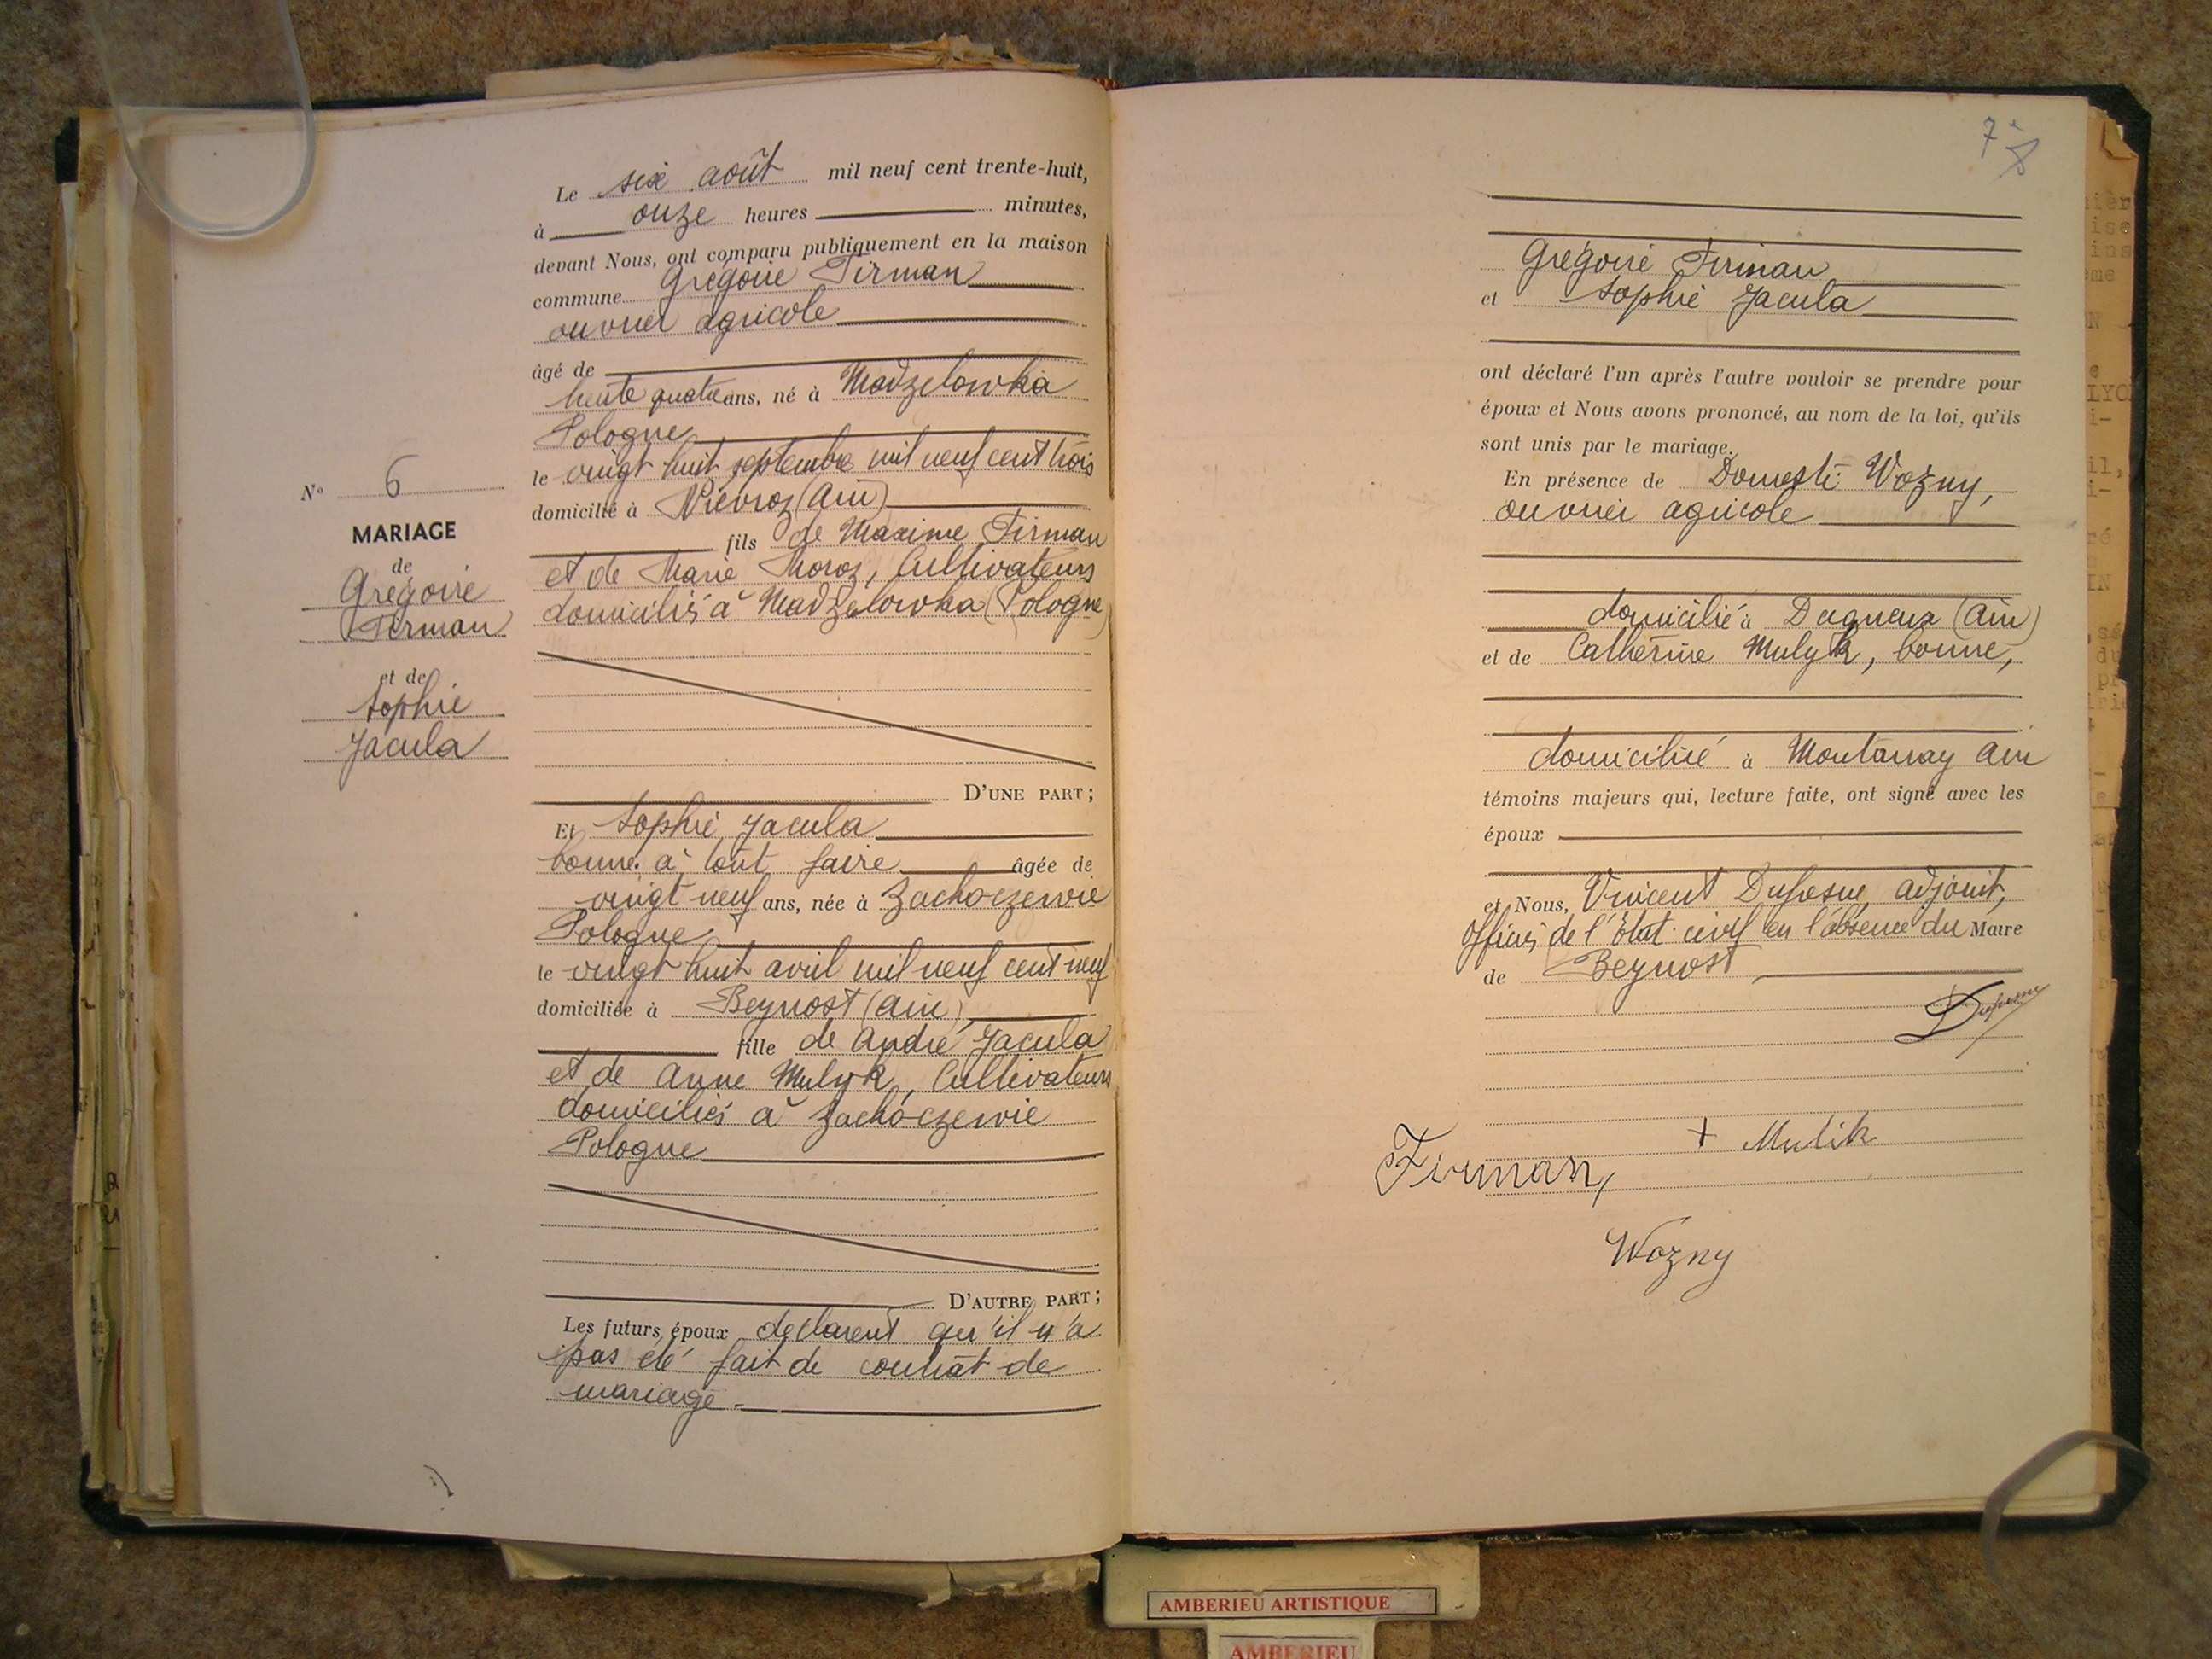 Le six août mil neuf cent trente-huit,
à onze heures minutes,
devant Nous, ont comparu publiquement en la maison
commune Grégoire Firman
ouvrier agricole
âgé de
trente quatre ans, né à Madzelowka
Pologne
le vingt huit septembre mil neuf cent trois
domicilié à Niévroz (Ain)
fils de Maxime Firman
et de Marie Moroz, Cultivateurs
domiciliés à Madzelowka (Pologne)
N° 6
MARIAGE
de
Grégoire
Firman
et de
Sophie
Jacula
D'UNE PART;
Et Sophie Jacula
bonne à tout faire âgée de
vingt neuf ans, née à Zachoczewie
Pologne
le vingt huit avril mil neuf cent neuf
domiciliée à Beynost (Ain)
fille de André Jacula
et de Anne Mulyk, Cultivateurs
domiciliés à Zachoczewie
Pologne
D'AUTRE PART;
Les futurs époux déclarent qu'il n'a
pas été fait de contrat de
mariage.
7
Grégoire Firman
et Sophie Jacula
ont déclaré l'un après l'autre vouloir se prendre pour
époux et Nous avons prononcé, au nom de la loi, qu'ils
sont unis par le mariage.
En présence de Wozny,
ouvrier agricole
domicilié à Dagneux (Ain)
et de Catherine Mulyk, bonne,
domiciliée à Montanay Ain
témoins majeurs qui, lecture faite, ont signé avec les
époux
et Nous, Vincent Dufresne, adjoint,
officier de l'État civil en l'absence du Maire
de Beynost
Dufresne
+ Mulik
Firman,
Wozny
AMBERIEU ARTISTIQUE
AMBERIEU